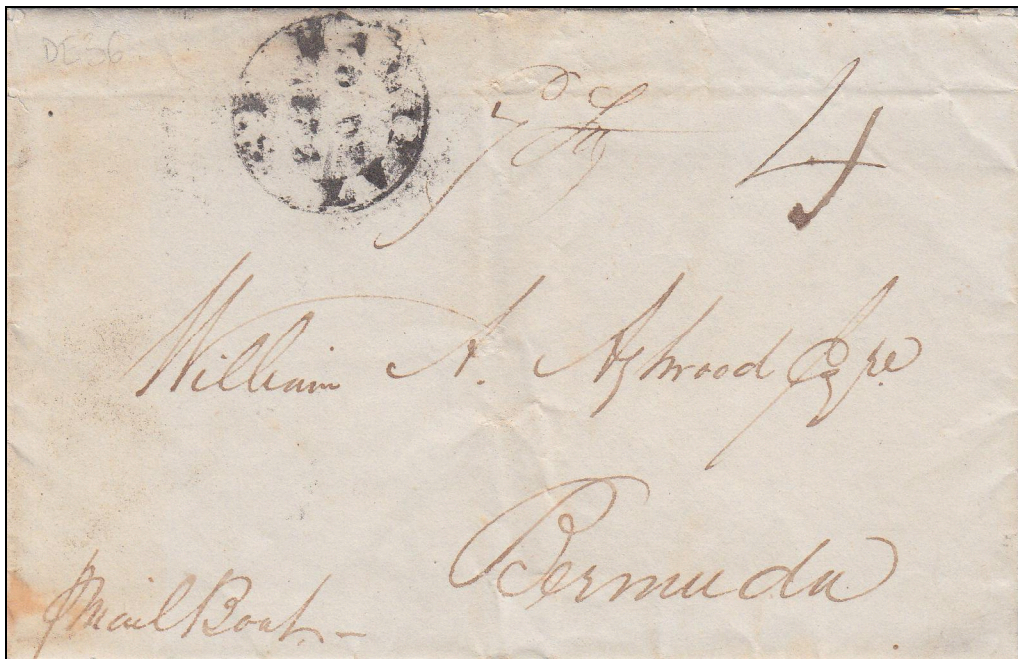 DE36
4
William A. Ashwood Esqre
Bermuda
p Mail Boat